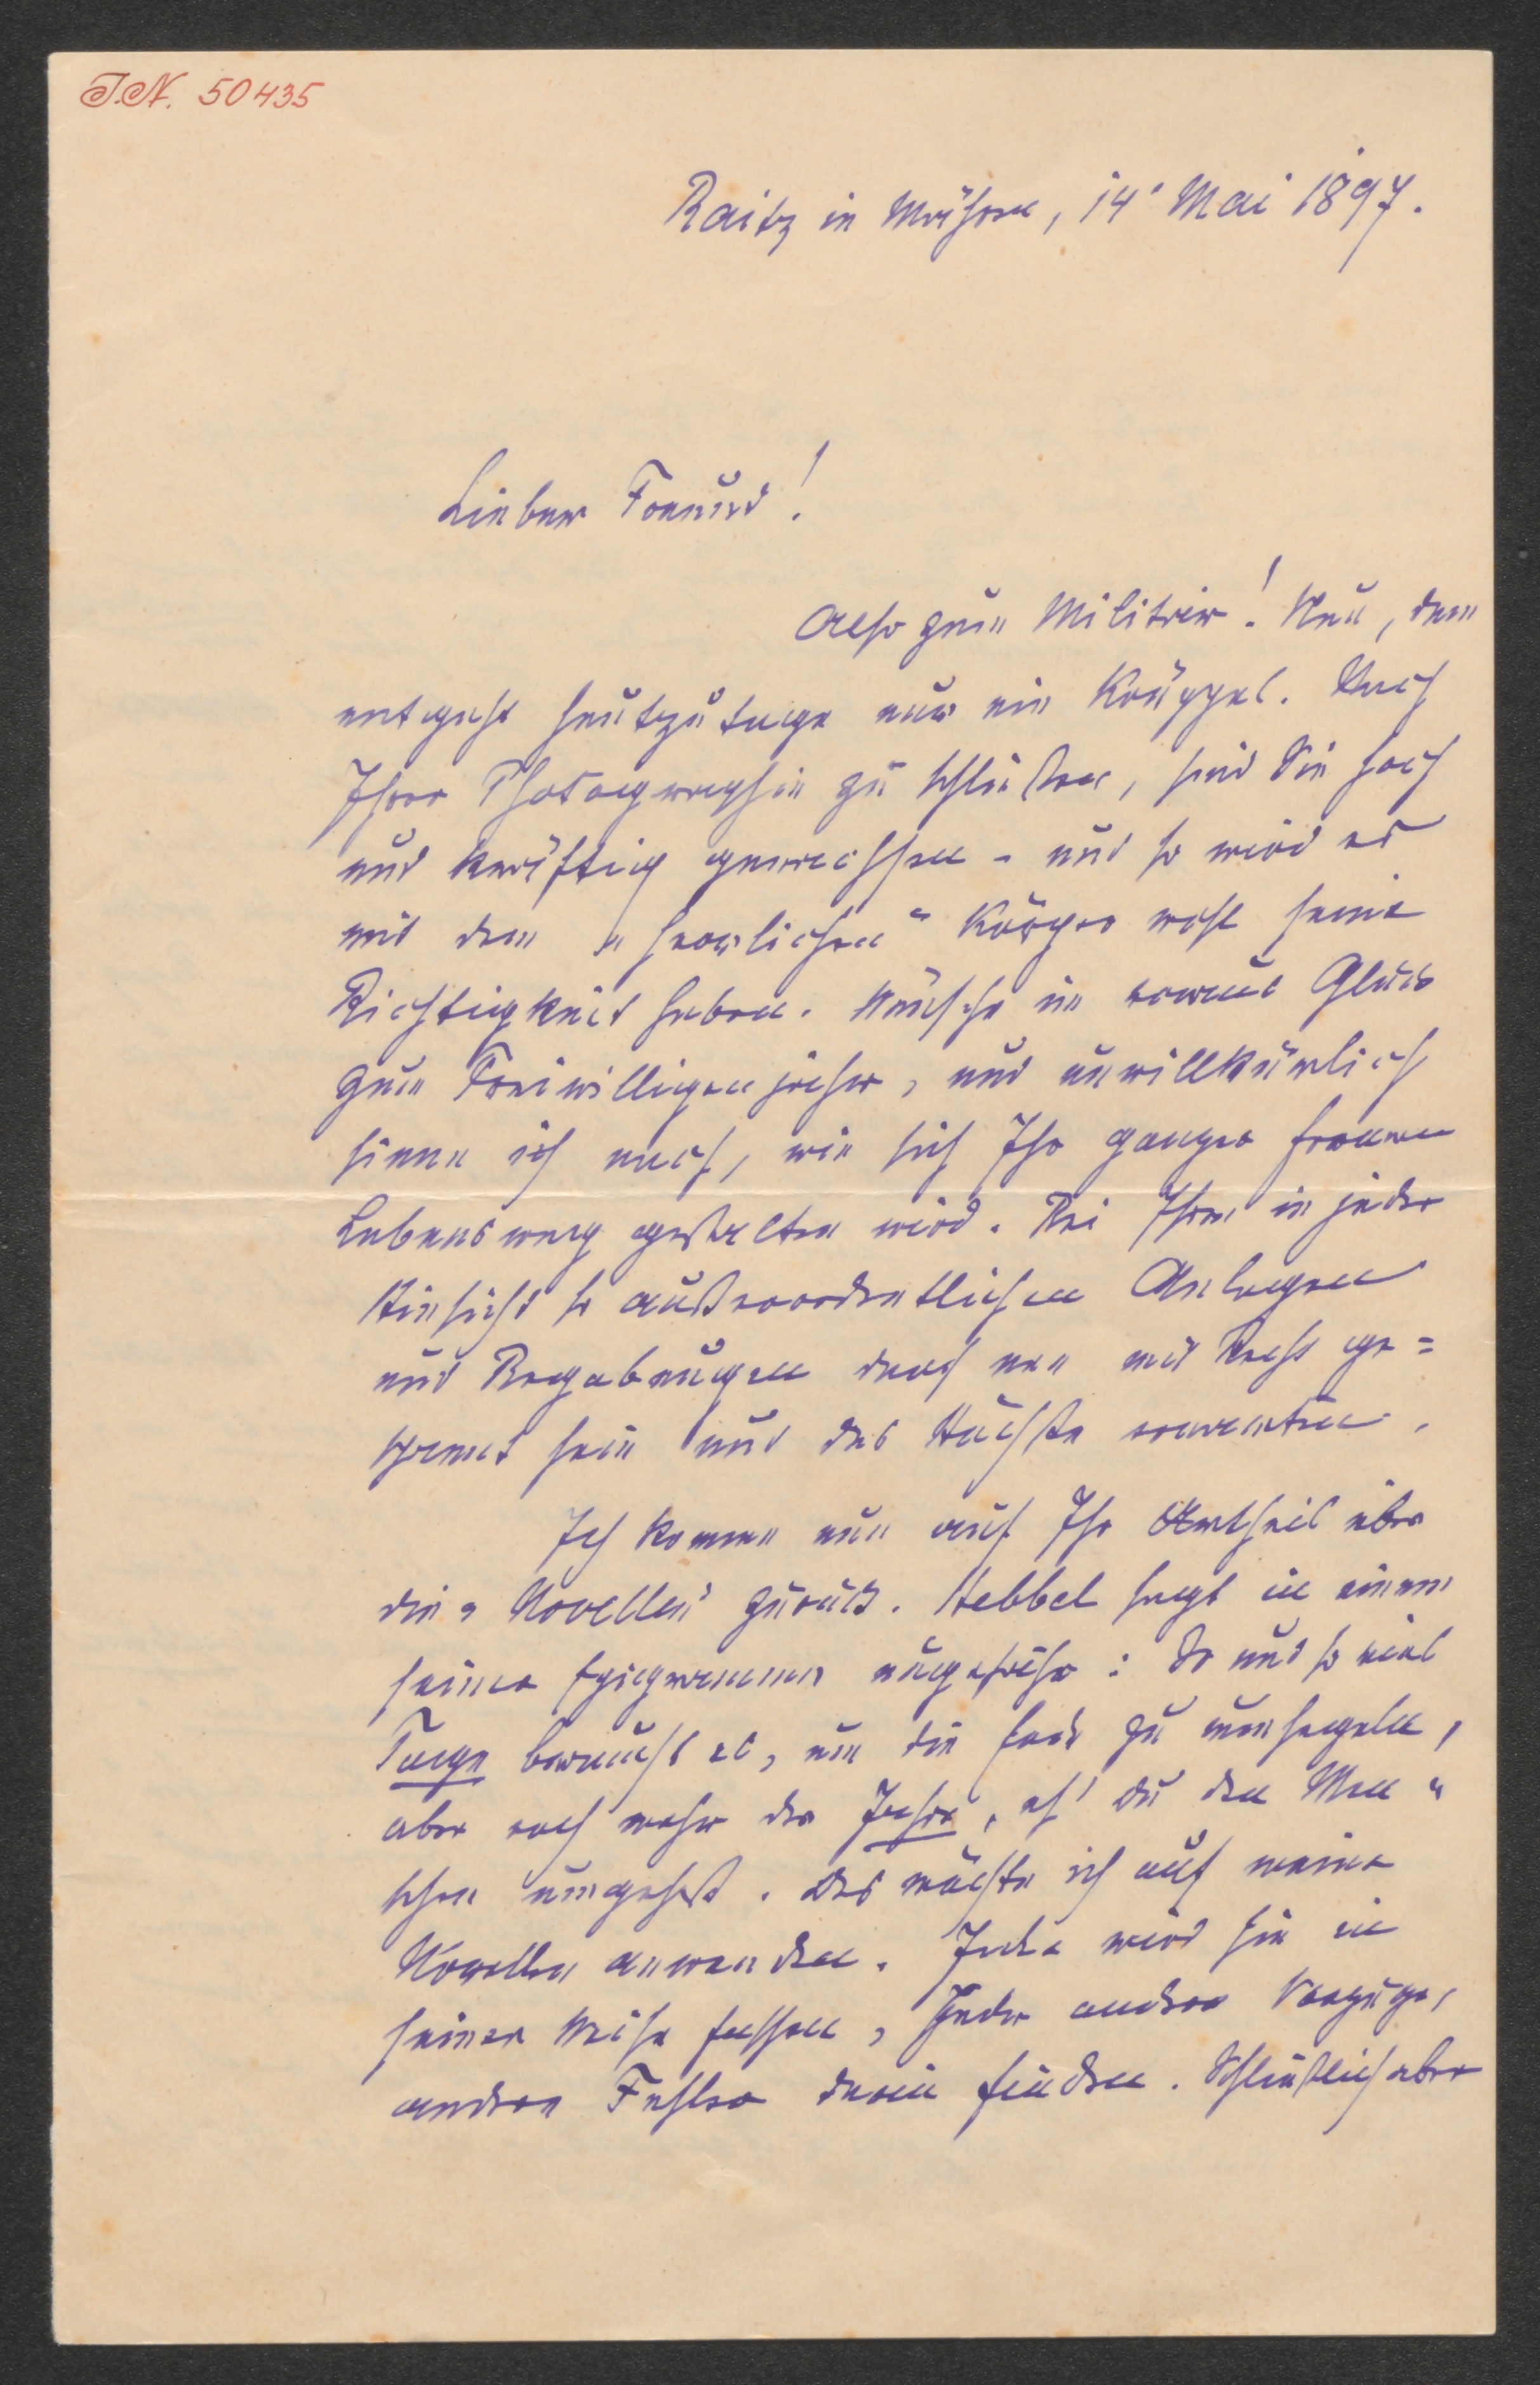 I.N. 50435
Raitz in Mähren, 14' Mai 1897.
Lieber Freund!
Also zum Militär! Nun, dem
entgeht heutzutage nur ein Krüppel. Nach
Ihrer Photographie zu schließen, sind Sie hoch
und kräftig gewachsen - und so wird es
mit dem „herrlichen“ Körper wohl seine
Richtigkeit haben. Wünsche im voraus Glück
zum Freiwilligenjahr, und unwillkürlich
sinne ich nach, wie sich Ihr ganzer fernerer
Lebensweg gestalten wird. Bei Ihren in jeder
Hinsicht so außerordentlichen Anlagen
und Begabungen darf man mit Recht ge=
spannt sein und das Höchste erwarten.
Ich komme nun auf Ihr Urtheil über
die „Novellen“ zurück. Hebbel sagt in einem
seiner Epigramme ungefähr: So und so viel
Tage braucht es, um die Erde zu umsegeln,
aber noch mehr der Jahre, eh' du den Men„
schen umgehst. Das möchte ich auf meine
Novellen anwenden. Jeder wird sie in
seiner Weise fassen, Jeder andere Vorzüge,
andere Fehler darin finden. Schließlich aber